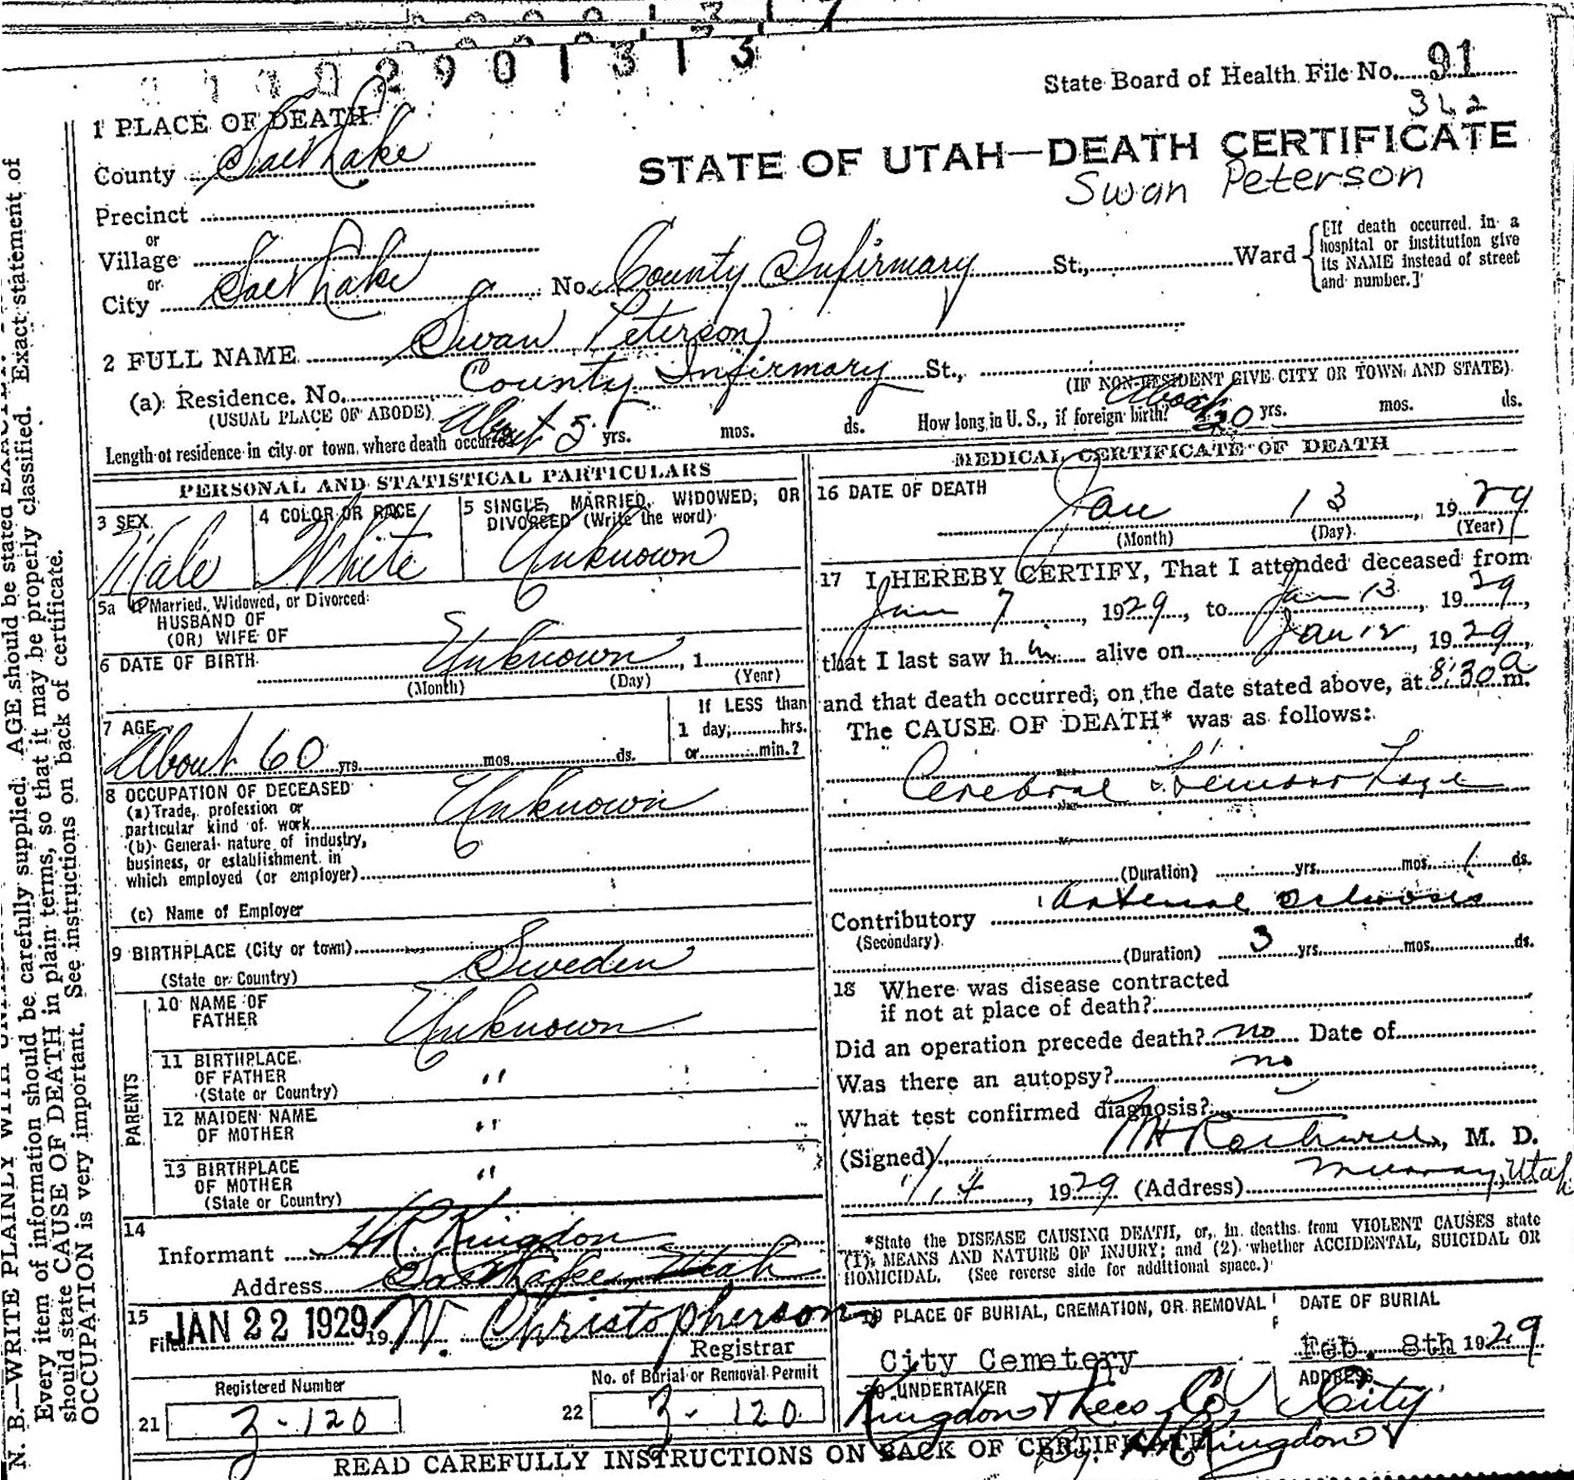 2901313
State Board of Health File No. 91
362
1 PLACE OF DEATH
STATE OF UTAH—DEATH CERTIFICATE
Swan Peterson
County Salt Lake
Precinct
or
Village
or
City Salt Lake No. County Infirmary St., Ward
[If death occurred in a
hospital or institution give
its NAME instead of street
and number.]
2 FULL NAME Swan Peterson
(a) Residence. No. County Infirmary St.,
(USUAL PLACE OF ABODE)
(IF NON-RESIDENT GIVE CITY OR TOWN AND STATE)
Length of residence in city or town where death occurred About 5 yrs. mos. ds. How long in U. S., if foreign birth? About 20 yrs. mos. ds.
PERSONAL AND STATISTICAL PARTICULARS
3 SEX
Male
4 COLOR OR RACE
White
5 SINGLE, MARRIED, WIDOWED, OR
DIVORCED (Write the word)
Unknown
5a If Married, Widowed, or Divorced
HUSBAND OF
(OR) WIFE OF
6 DATE OF BIRTH Unknown, 1
(Month) (Day) (Year)
7 AGE
About 60 yrs. mos. ds.
If LESS than
1 day, hrs.
or min.?
8 OCCUPATION OF DECEASED
(a) Trade, profession or
particular kind of work Unknown
(b) General nature of industry,
business, or establishment in
which employed (or employer)
(c) Name of Employer
9 BIRTHPLACE (City or town)
(State or Country) Sweden
PARENTS
10 NAME OF
FATHER Unknown
11 BIRTHPLACE
OF FATHER "
(State or Country)
12 MAIDEN NAME
OF MOTHER "
13 BIRTHPLACE
OF MOTHER "
(State or Country)
14
Informant H R Kingdon
Address Salt Lake, Utah
15
Filed JAN 22 1929 19 W. Christopherson
Registrar
Registered Number
21 3-120
No. of Burial or Removal Permit
22 3-120
MEDICAL CERTIFICATE OF DEATH
16 DATE OF DEATH
Jan 13, 1929
(Month) (Day) (Year)
17 I HEREBY CERTIFY, That I attended deceased from
Jan 7 1929, to Jan 13, 1929,
that I last saw him alive on Jan 12, 1929,
and that death occurred, on the date stated above, at 8:30 a m.
The CAUSE OF DEATH* was as follows:
Cerebral Hemorrhage
(Duration) yrs. mos. 1 ds.
Contributory Arterial Sclerosis
(Secondary)
(Duration) 3 yrs. mos. ds.
18 Where was disease contracted
if not at place of death?
Did an operation precede death? no Date of
Was there an autopsy? no
What test confirmed diagnosis?
(Signed) M. D.
1/14, 1929 (Address) Murray, Utah
*State the DISEASE CAUSING DEATH, or, in deaths from VIOLENT CAUSES state
(1) MEANS AND NATURE OF INJURY; and (2) whether ACCIDENTAL, SUICIDAL OR
HOMICIDAL. (See reverse side for additional space.)
19 PLACE OF BURIAL, CREMATION, OR REMOVAL
City Cemetery
DATE OF BURIAL
Feb. 8th 1929
20 UNDERTAKER
Kingdon & Lees Co
By H R Kingdon
ADDRESS
City
READ CAREFULLY INSTRUCTIONS ON BACK OF CERTIFICATE
N. B.—WRITE PLAINLY WITH
Every item of information should be carefully supplied. AGE should be stated EXACTLY. Exact statement of
should state CAUSE OF DEATH in plain terms, so that it may be properly classified.
OCCUPATION is very important. See instructions on back of certificate.